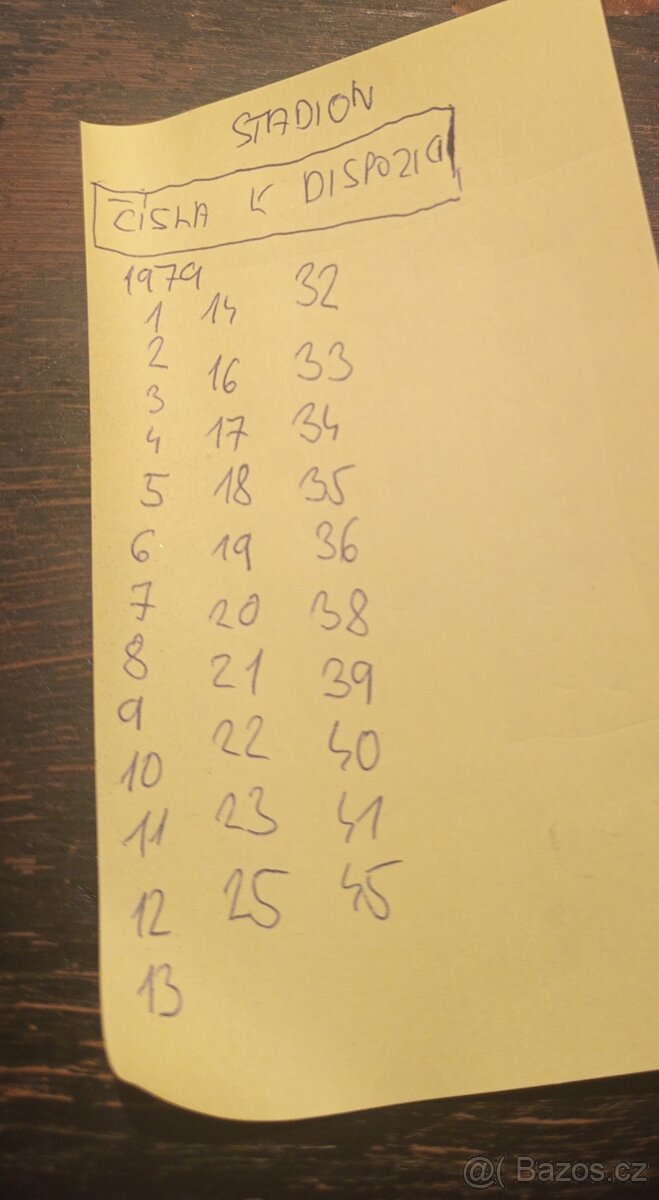 STADION
ČÍSLA K DISPOZICI
1979
1 14 32
2 16 33
3 17 34
4 18 35
5 19 36
6 20 38
7 21 39
8 22 40
9 23 41
10 25 45
11
12
13
@( Bazos.cz